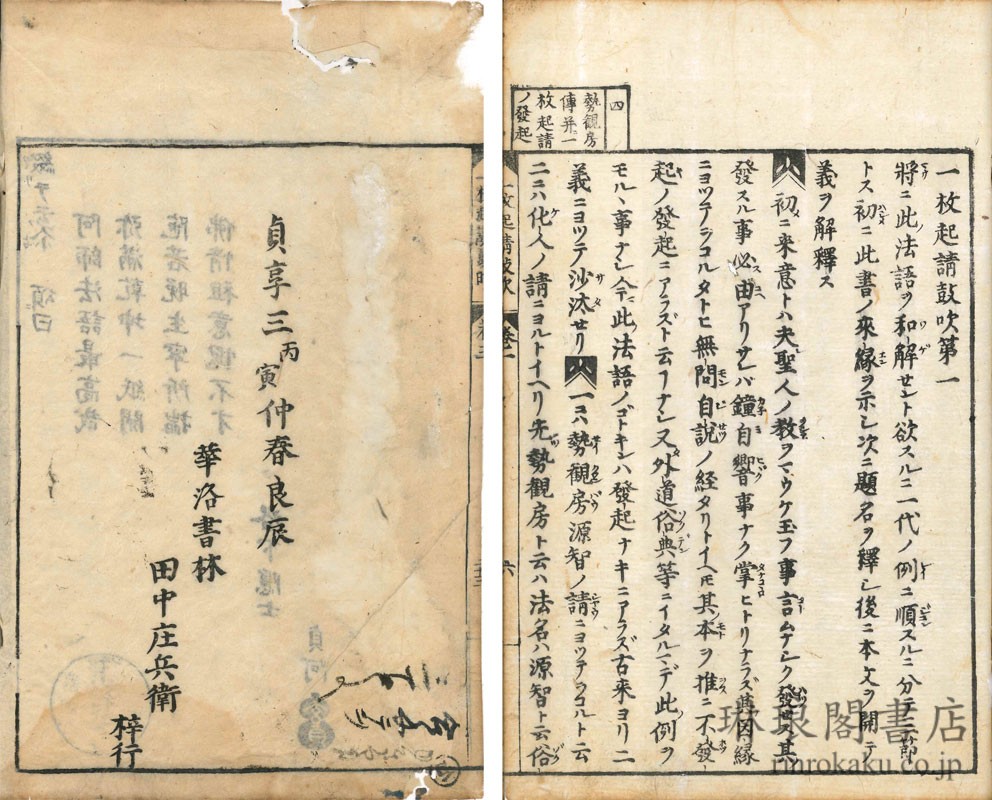 四
勢觀房
傳并一
枚起請
ノ發起
一枚起請鼓吹第一
將ニ此法語ヲ和解セント欲スルニ一代ノ例ニ順スルニ分テ三節
トス初ニ此書ノ來縁ヲ示シ次ニ題名ヲ釋シ後ニ本文ヲ開テ
義ヲ解釋ス
初ニ来意トハ夫聖人ノ教ヲマウケ玉フ事言ムナシク發セズ其
發スル事必由アリサレバ鐘自響事ナク掌ヒトリナラズ其因縁
ニヨツテヲコルタトヒ無問自説ノ経タリトイヘモ其本ヲ推ニ不發
起ノ發起ニアラズト云フナシ又外道俗典等ニイタルマデ此例ヲ
モルヽ事ナシ今此法語ノゴトキンハ發起ナキニアラズ古来ヨリ二
義ニヨツテ沙汰セリ 一ニハ勢觀房源智ノ請ニヨツテヲコルト云
二ニハ化人ノ請ニヨルトイヘリ先勢觀房ト云ハ法名ハ源智ト云俗
一枚起請鼓吹
卷一
六
貞享三丙寅仲春良辰
華洛書林
田中庄兵衛
梓行
琳琅閣書店
rinrokaku.co.jp